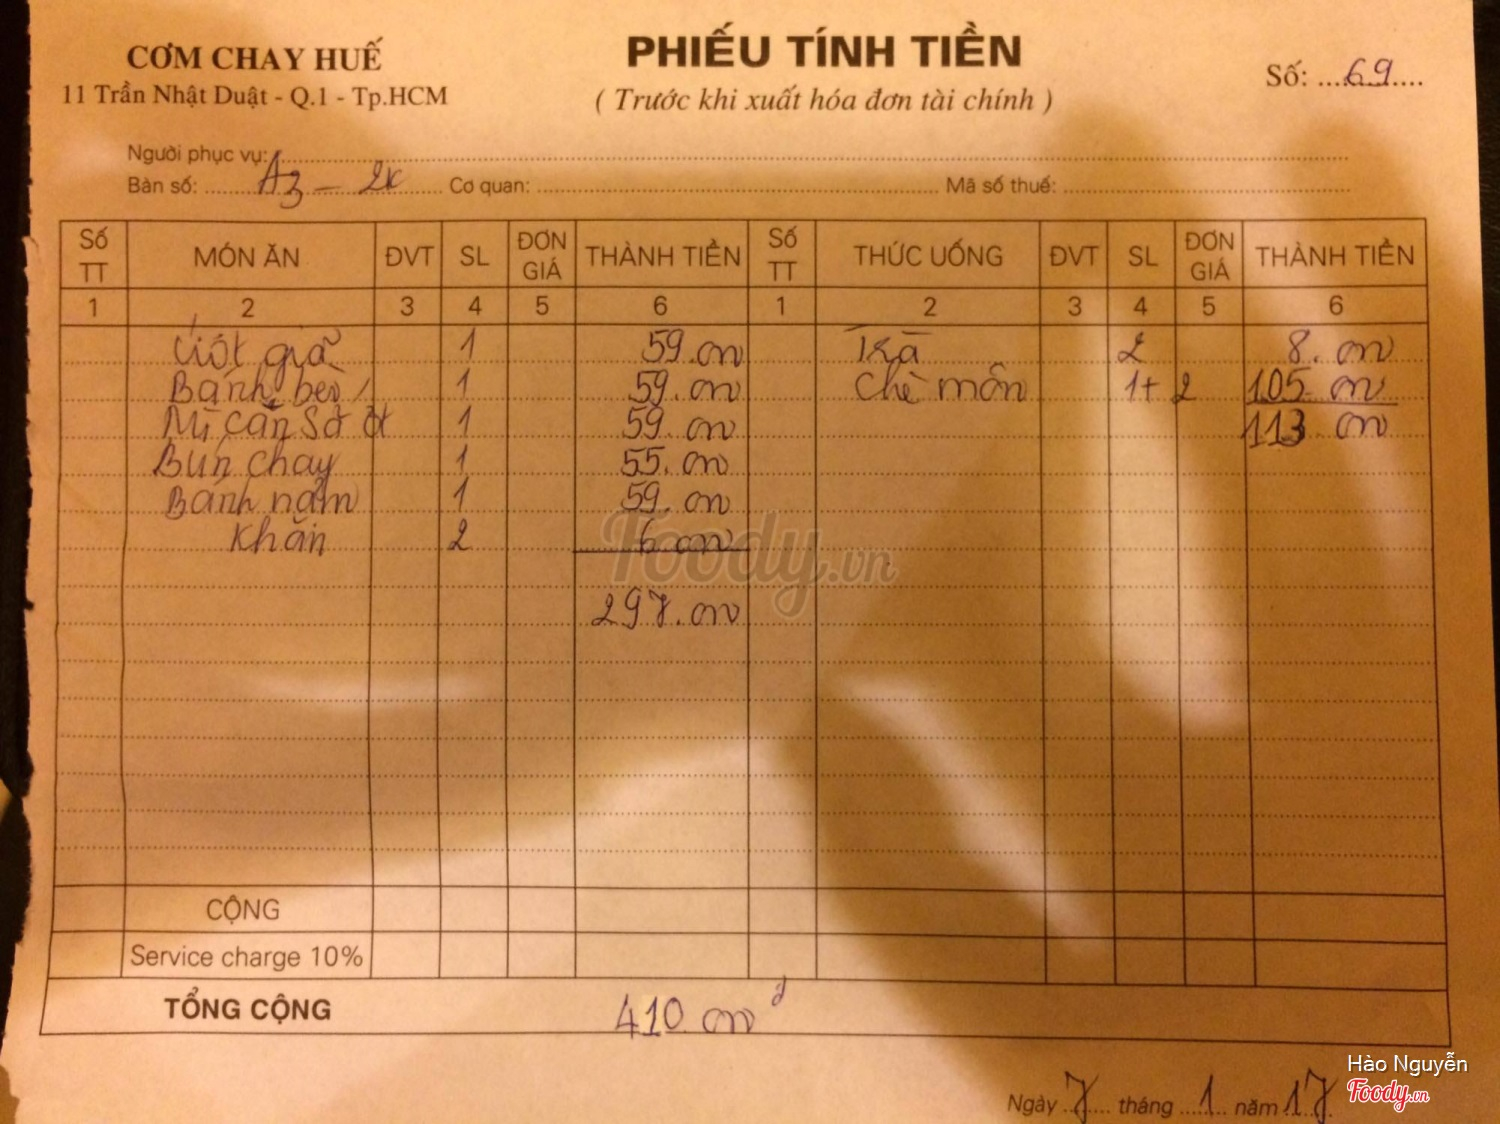 CƠM CHAY HUẾ
11 Trần Nhật Duật - Q.1 - Tp.HCM
PHIẾU TÍNH TIỀN
( Trước khi xuất hóa đơn tài chính )
Số: 69
Người phục vụ:
Bàn số: A3 - 2K Cơ quan: Mã số thuế:
Số TT MÓN ĂN ĐVT SL ĐƠN GIÁ THÀNH TIỀN Số TT THỨC UỐNG ĐVT SL ĐƠN GIÁ THÀNH TIỀN
1 2 3 4 5 6 1 2 3 4 5 6
giã 1 59.000 Trà 2 8.000
Bánh bèo 1 59.000 Chè môn 1+2 105.000
Mì căn Sả ớt 1 59.000 113.000
Bún chay 1 55.000
Bánh nậm 1 59.000
Khăn 2 6.000
297.000
CỘNG
Service charge 10%
TỔNG CỘNG 410.000đ
Ngày 7 tháng 1 năm 17
Foody.vn
Hào Nguyễn
Foody.vn